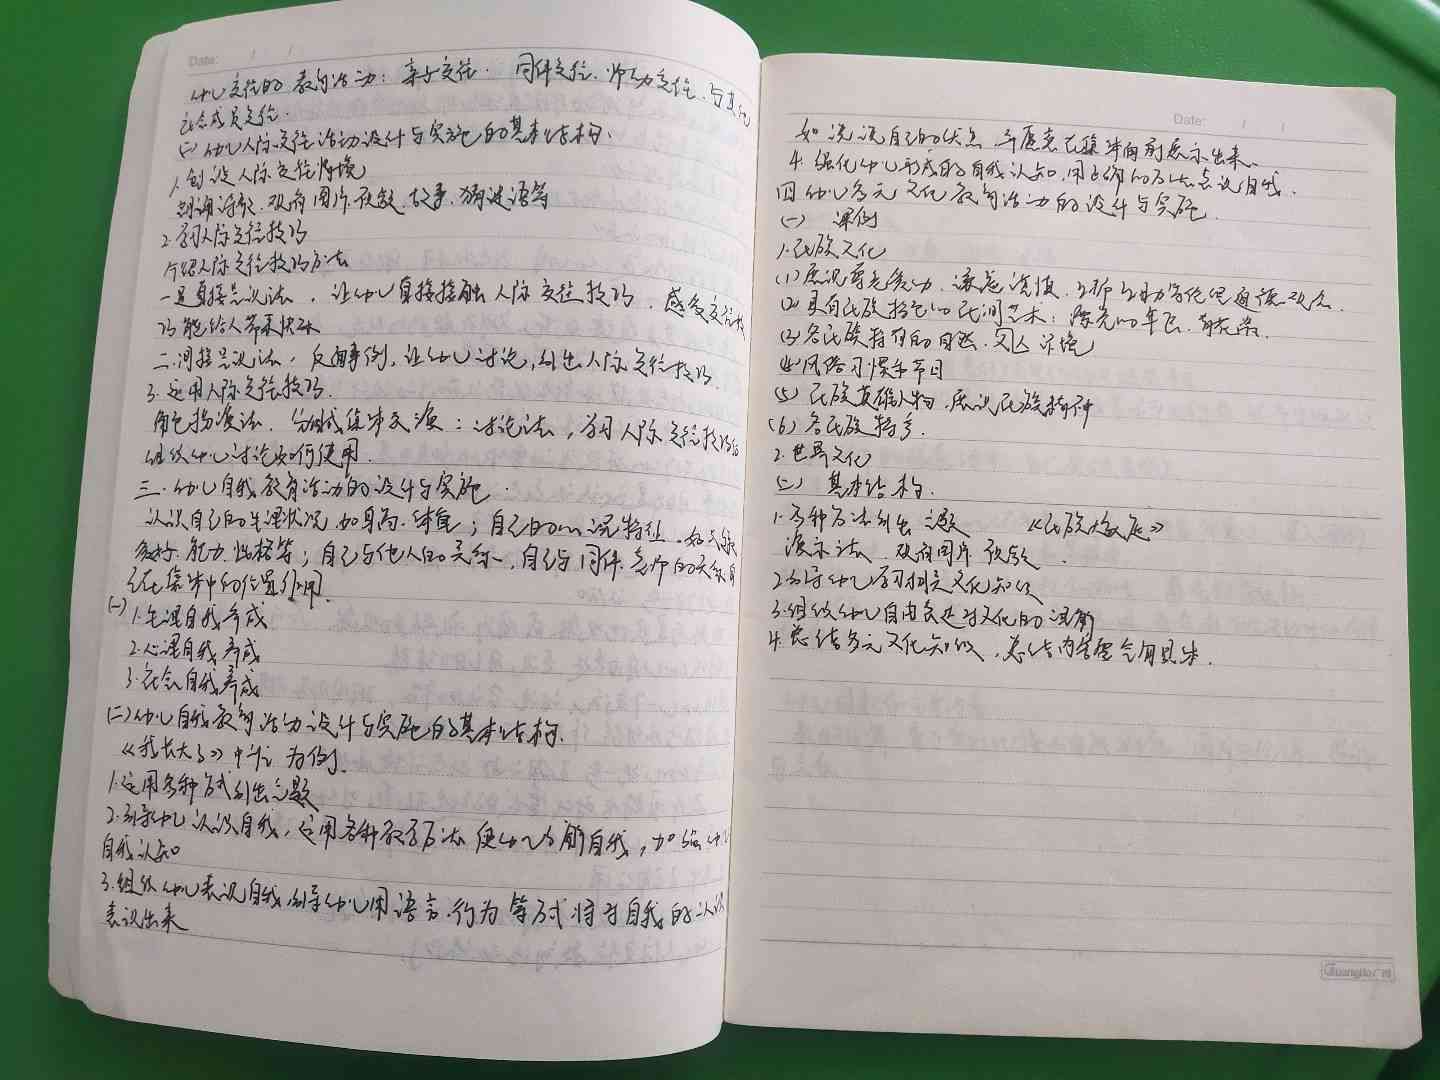 Date:
幼儿交往的教育活动：亲子交往、同伴交往、师幼交往、与其他
社会成员交往.
(二)幼儿人际交往活动设计与实施的基本结构.
1.创设人际交往情境
观看图片、儿歌、故事、猜谜语等
2.学习人际交往技巧
介绍人际交往技巧方法
一是直接法，让幼儿直接接触人际交往技巧，感受交往技
巧能给人带来快乐
二.间接法，反面事例，让幼儿讨论，引出人际交往技巧.
3.运用人际交往技巧.
角色扮演法、分组或集体交流：讨论法，学习人际交往技巧后
组织幼儿讨论如何使用.
三.幼儿自我教育活动的设计与实施.
认识自己的生理状况如身高、体重；自己的心理特征，如兴趣
爱好、能力、性格等；自己与他人的关系，自己与同伴、老师的关系自
己在集体中的位置作用.
(一)1.生理自我养成
2.心理自我养成
3.社会自我养成
(二)幼儿自我教育活动设计与实施的基本结构.
《我长大了》中班为例.
1.运用各种方式引出主题
2.引导幼儿认识自我，运用各种教学方法使幼儿了解自我，加强幼儿
自我认知
3.组织幼儿表现自我，引导幼儿用语言、行为等方式将对自我的认识
表现出来
Date:
如说说自己的优点，并愿意在集体面前展示出来、
4.强化幼儿形成的自我认知，用正确的方法表现自我.
四幼儿多元文化教育活动的设计与实施.
(一) 课例
1.民族文化
(1)尊老爱幼、谦逊、互帮互助等传统道德观念.
(2)具有民族特色的民间艺术：漂亮的年画、青花瓷.
(3)各民族特有的自然、环境
(4)风俗习惯和节日
(5)民族英雄人物，展现民族精神
(6)各民族特色.
2.世界文化
(二) 基本结构.
1.多种方法引出主题 《民族大家庭》
演示法、观看图片视频.
2.引导幼儿学习相关文化知识
3.组织幼儿自由表达对文化的理解
4.总结多元文化知识，总结内容要全面具体.
GuangBo 广博